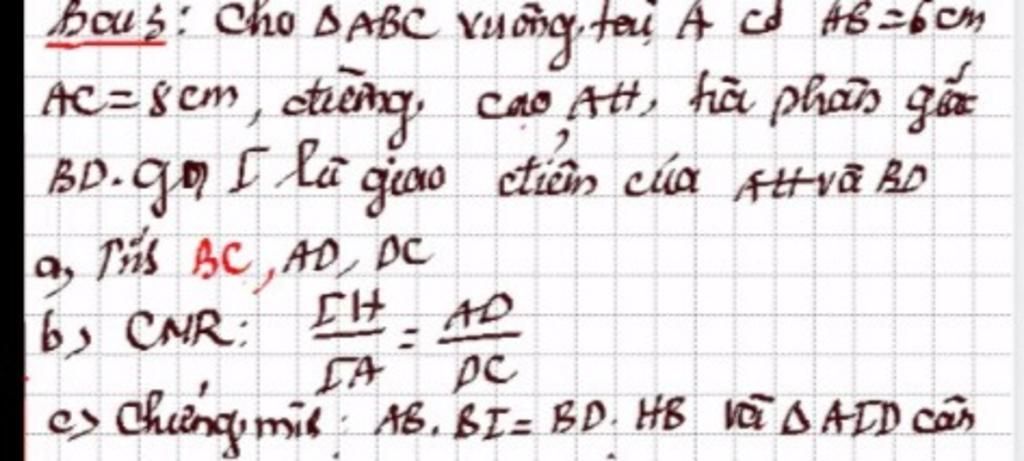 Bài 5: Cho ΔABC vuông tại A có AB = 6cm
AC = 8cm, đường cao AH, tia phân giác
BD. gọi I là giao điểm của AH và BD
a, Tính BC, AD, DC
b) CMR: IH/IA = AD/DC
c) Chứng minh: AB. BI = BD. HB và ΔAID cân